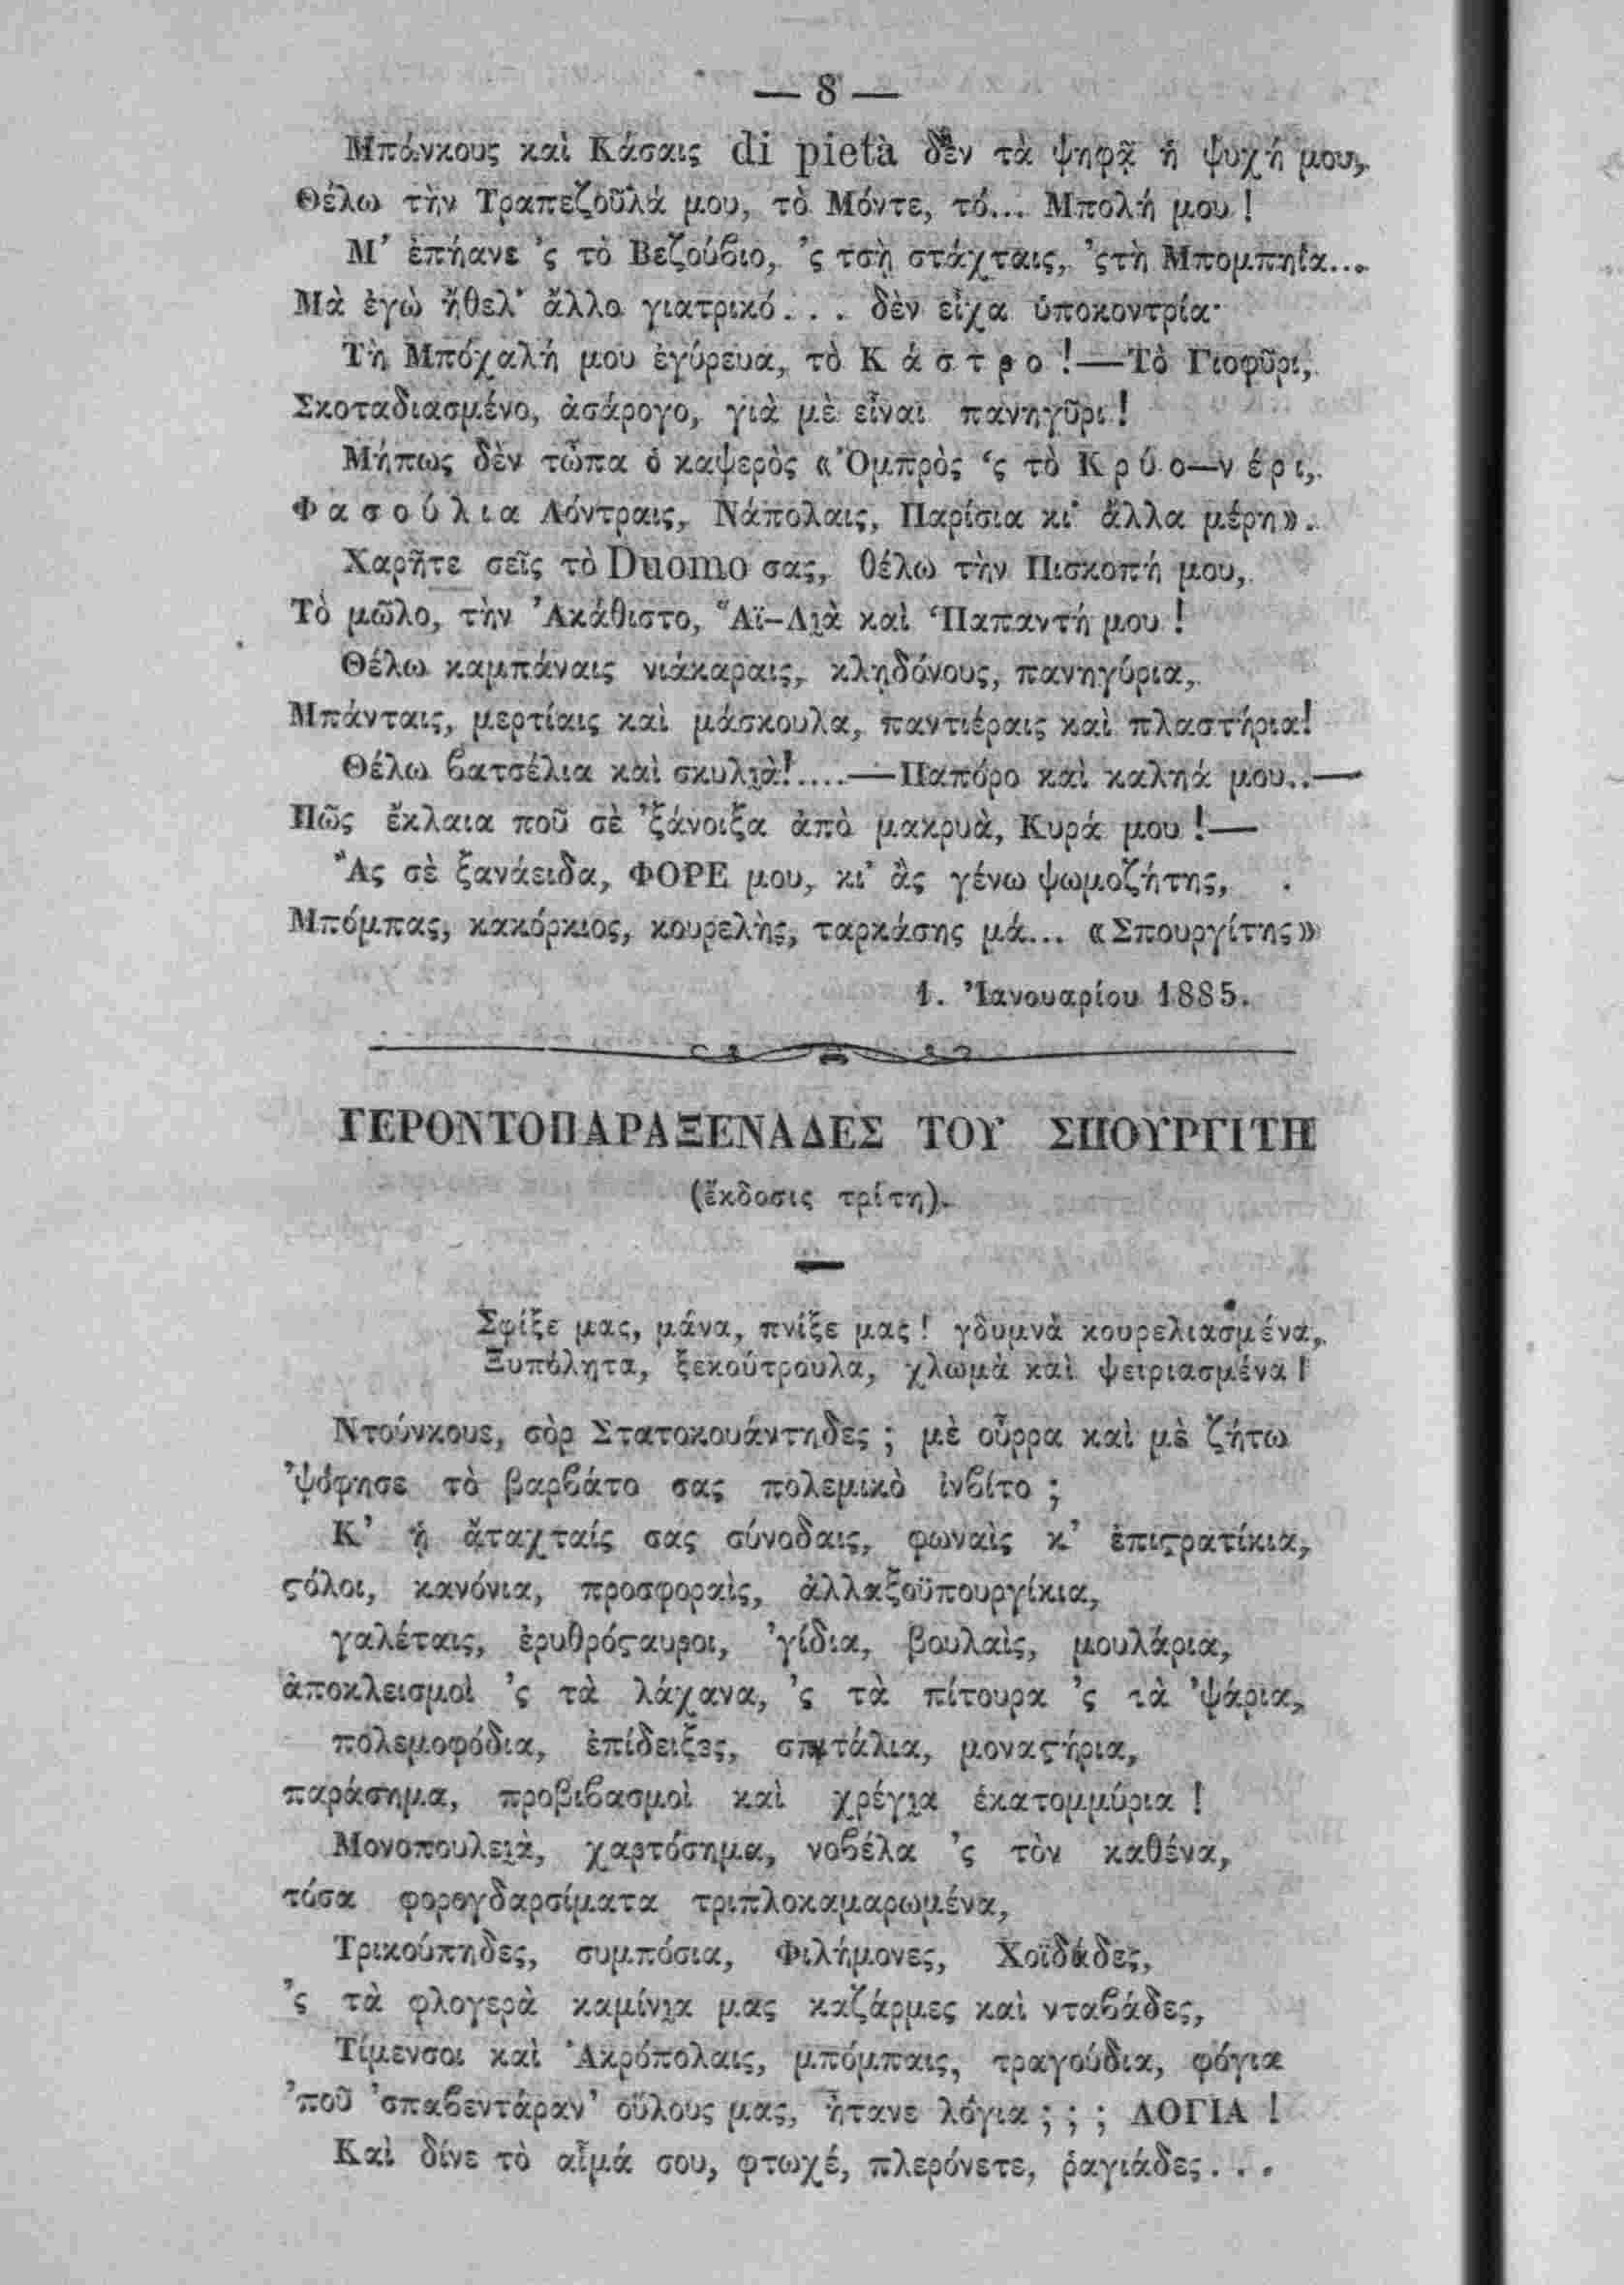 — 8 —
Μπάνκους καὶ Κάσαις di pietà δὲν τὰ ψηφᾷ ἡ ψυχή μου,
Θέλω τὴν Τραπεζοῦλά μου, τὸ Μόντε, τό... Μπολή μου !
Μ' ἐπήανε 'ς τὸ Βεζούϐιο, 'ς τσὴ στάχταις, 'ςτὴ Μπομπηία...
Μὰ ἐγὼ ἤθελ' ἄλλο γιατρικό. . . δὲν εἶχα ὑποκοντρία·
Τὴ Μπόχαλή μου ἐγύρευα, τὸ Κ ά σ τ ρ ο !—Τὸ Γιοφῦρι,
Σκοταδιασμένο, ἀσάρογο, γιὰ μὲ εἶναι πανηγῦρι !
Μήπως δὲν τὦπα ὁ καψερὸς «Ὀμπρὸς 'ς τὸ Κ ρ ύ ο—ν έ ρ ι,
Φ α σ ο ύ λ ι α Λόντραις, Νάπολαις, Παρίσια κι' ἄλλα μέρη».
Χαρῆτε σεῖς τὸ Duomo σας, θέλω τὴν Πισκοπή μου,
Τὸ μῶλο, τὴν Ἀκάθιστο, Ἅϊ-Λιὰ καὶ Ὑπαπαντή μου !
Θέλω καμπάναις νιάκαραις, κληδόνους, πανηγύρια,
Μπάνταις, μερτίαις καὶ μάσκουλα, παντιέραις καὶ πλαστήρια!
Θέλω ϐατσέλια καὶ σκυλιὰ!....—Παπόρο καὶ καληά μου..—
Πῶς ἔκλαια ποῦ σὲ 'ξάνοιξα ἀπὸ μακρυὰ, Κυρά μου !—
Ἂς σὲ ξανάειδα, ΦΟΡΕ μου, κι' ἂς γένω ψωμοζήτης,
Μπόμπας, κακόρκιος, κουρελὴς, ταρκάσης μά... «Σπουργίτης»
1. Ἰανουαρίου 1885.
ΓΕΡΟΝΤΟΠΑΡΑΞΕΝΑΔΕΣ ΤΟΥ ΣΠΟΥΡΓΙΤΗ
(ἔκδοσις τρίτη).
Σφίξε μας, μάνα, πνίξε μας ! γδυμνὰ κουρελιασμένα,
Ξυπόλητα, ξεκούτρουλα, χλωμὰ καὶ ψειριασμένα !
Ντούνκουε, σὸρ Στατοκουάντηδες ; μὲ οὖρρα καὶ μὲ ζήτω
'ψόφησε τὸ βαρϐάτο σας πολεμικὸ ἰνϐίτο ;
Κ' ᾑ ἄταχταίς σας σύνοδαις, φωναὶς κ' ἐπιϛρατίκια,
ϛόλοι, κανόνια, προσφοραὶς, ἀλλαξοϋπουργίκια,
γαλέταις, ἐρυθρόϛαυροι, 'γίδια, βουλαὶς, μουλάρια,
ἀποκλεισμοὶ 'ς τὰ λάχανα, 'ς τὰ πίτουρα 'ς τὰ 'ψάρια,
πολεμοφόδια, ἐπίδειξες, σπιτάλια, μοναϛήρια,
παράσημα, προβιϐασμοὶ καὶ χρέγια ἑκατομμύρια !
Μονοπουλειὰ, χαρτόσημα, νοϐέλα 'ς τὸν καθένα,
τόσα φορογδαρσίματα τριπλοκαμαρωμένα,
Τρικούπηδες, συμπόσια, Φιλήμονες, Χοϊδάδες,
'ς τὰ φλογερὰ καμίνια μας καζάρμες καὶ νταϐάδες,
Τίμενσοι καὶ Ἀκρόπολαις, μπόμπαις, τραγούδια, φόγια
'ποῦ 'σπαϐεντάραν' οὕλους μας, ἤτανε λόγια ; ; ; ΛΟΓΙΑ !
Καὶ δίνε τὸ αἷμά σου, φτωχέ, πλερόνετε, ῥαγιάδες. . .